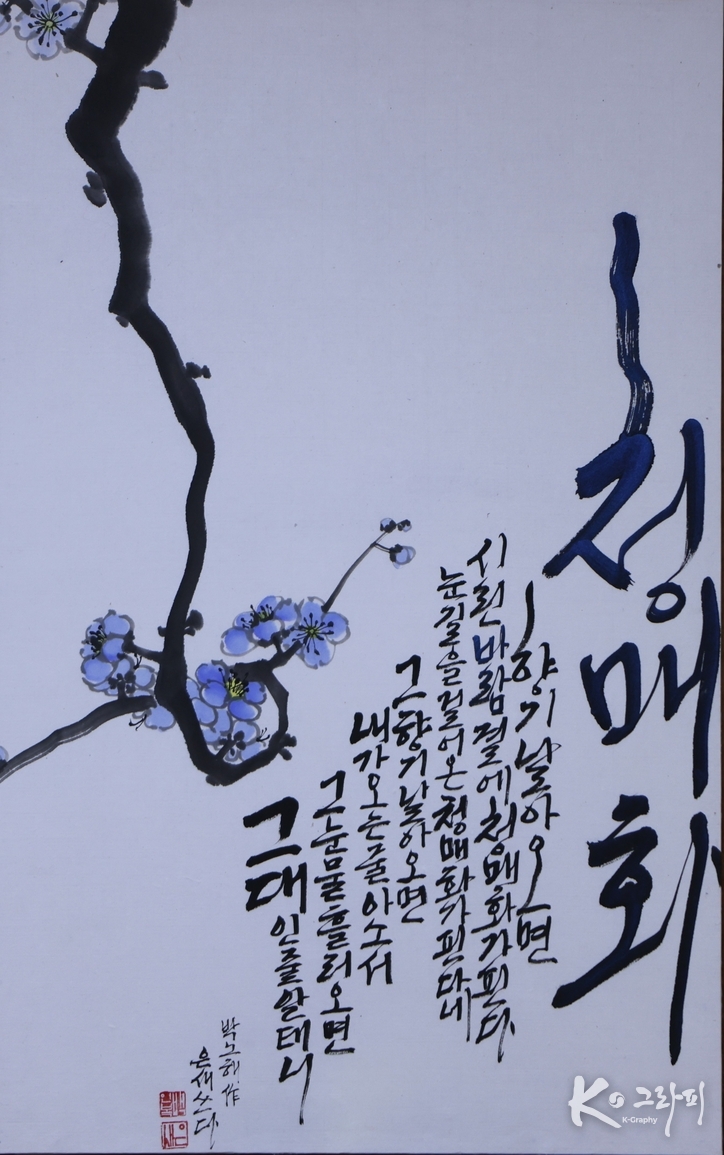 청매화
향기 날아오면
시린 바람결에 청매화가 핀다
눈길을 걸어온 청매화가 핀다네
그 향기 날아오면
내가 오는 줄 아소서
그 눈물 흘러오면
그대인 줄 알 테니
박노해 作
은새 쓰다
K 그라피
K-Graphy